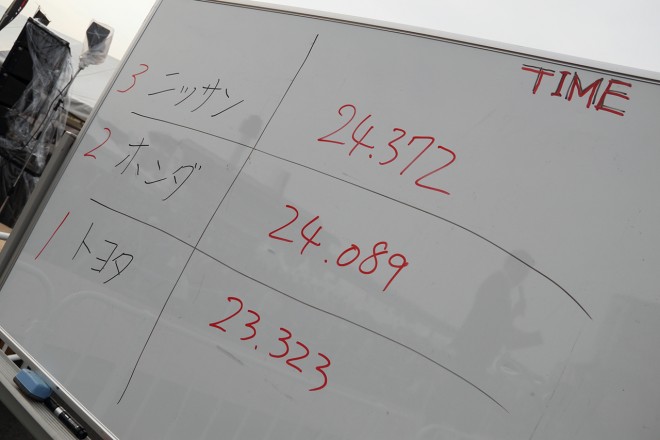 TIME
3 ニッサン 24.372
2 ホンダ 24.089
1 トヨタ 23.323